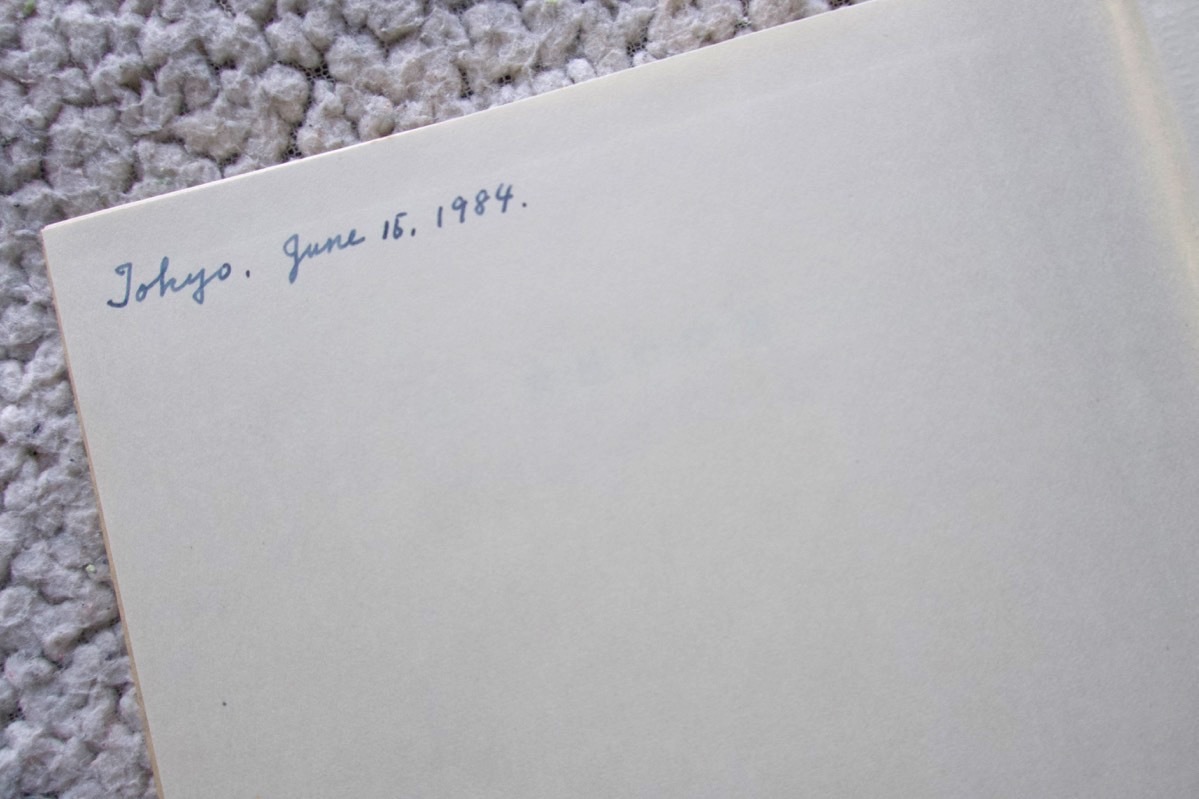 Tokyo. June 15, 1984.